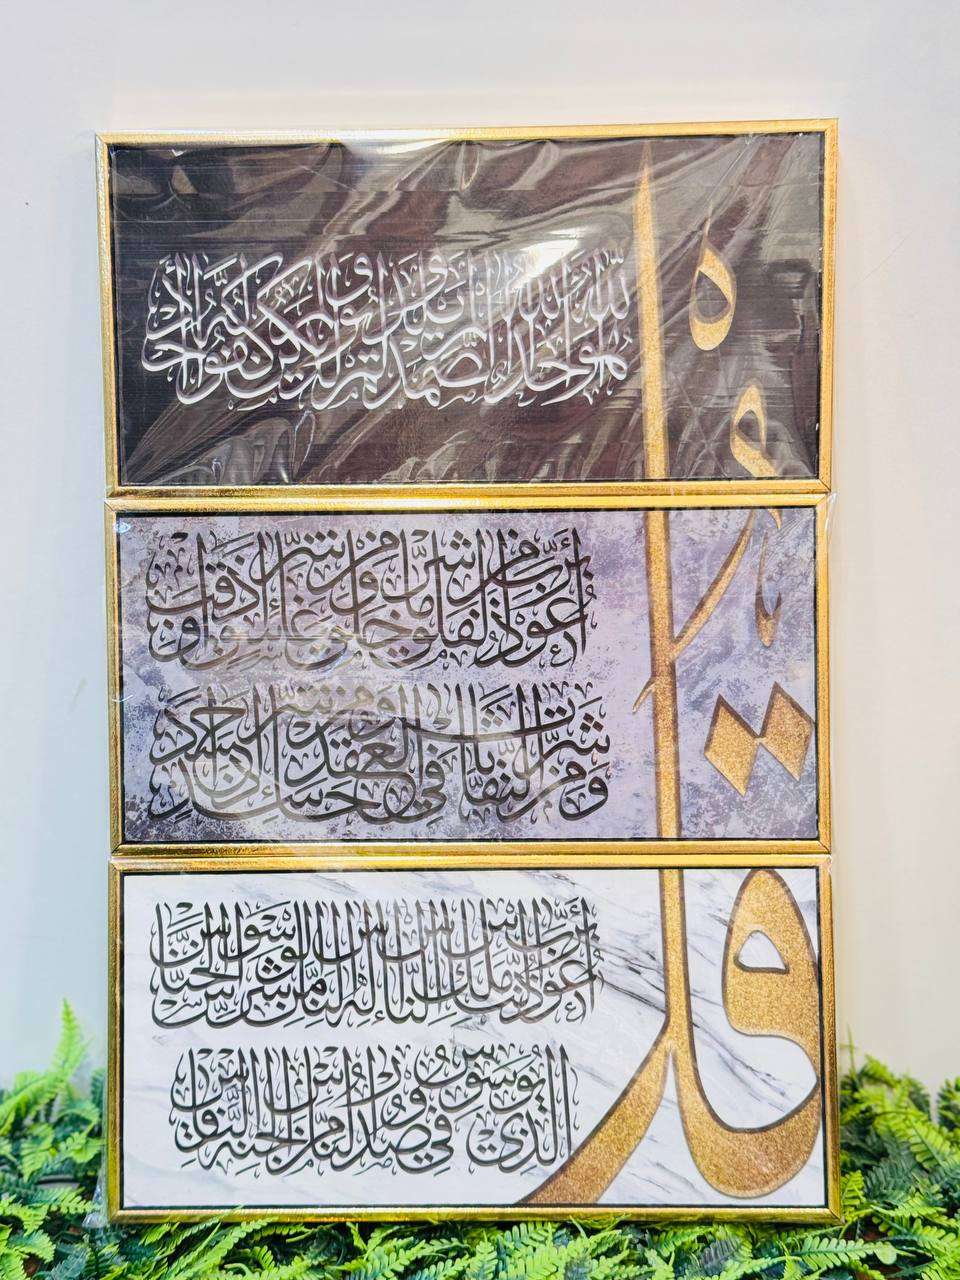 قُلْ
هُوَ اللَّهُ أَحَدٌ اللَّهُ الصَّمَدُ لَمْ يَلِدْ وَلَمْ يُولَدْ وَلَمْ يَكُنْ لَهُ كُفُوًا أَحَدٌ
أَعُوذُ بِرَبِّ الْفَلَقِ مِنْ شَرِّ مَا خَلَقَ وَمِنْ شَرِّ غَاسِقٍ إِذَا وَقَبَ
وَمِنْ شَرِّ النَّفَّاثَاتِ فِي الْعُقَدِ وَمِنْ شَرِّ حَاسِدٍ إِذَا حَسَدَ
أَعُوذُ بِرَبِّ النَّاسِ مَلِكِ النَّاسِ إِلَهِ النَّاسِ مِنْ شَرِّ الْوَسْوَاسِ الْخَنَّاسِ
الَّذِي يُوَسْوِسُ فِي صُدُورِ النَّاسِ مِنَ الْجِنَّةِ وَالنَّاسِ